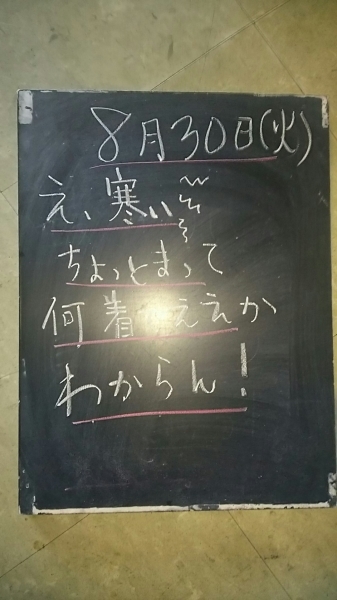 8月30日(火)
え、寒い
ちょっとまって
何着たらええか
わからん!